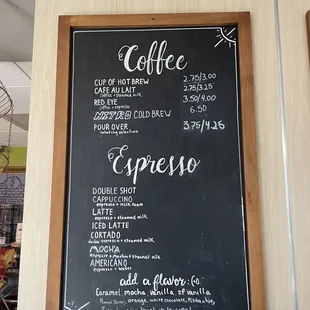 Coffee
CUP OF HOT BREW 2.75/3.00
CAFE AU LAIT 2.75/3.25
coffee + steamed milk
RED EYE 3.50/4.00
coffee + espresso
NITRO COLD BREW 6.50
POUR OVER 3.75/4.25
rotating selection
Espresso
DOUBLE SHOT
CAPPUCCINO
espresso + milk foam
LATTE
espresso + steamed milk
ICED LATTE
CORTADO
espresso + steamed milk
MOCHA
espresso + mocha + steamed milk
AMERICANO
espresso + water
add a flavor:
Caramel, mocha, vanilla, sf vanilla
orange, white chocolate, pistachio,